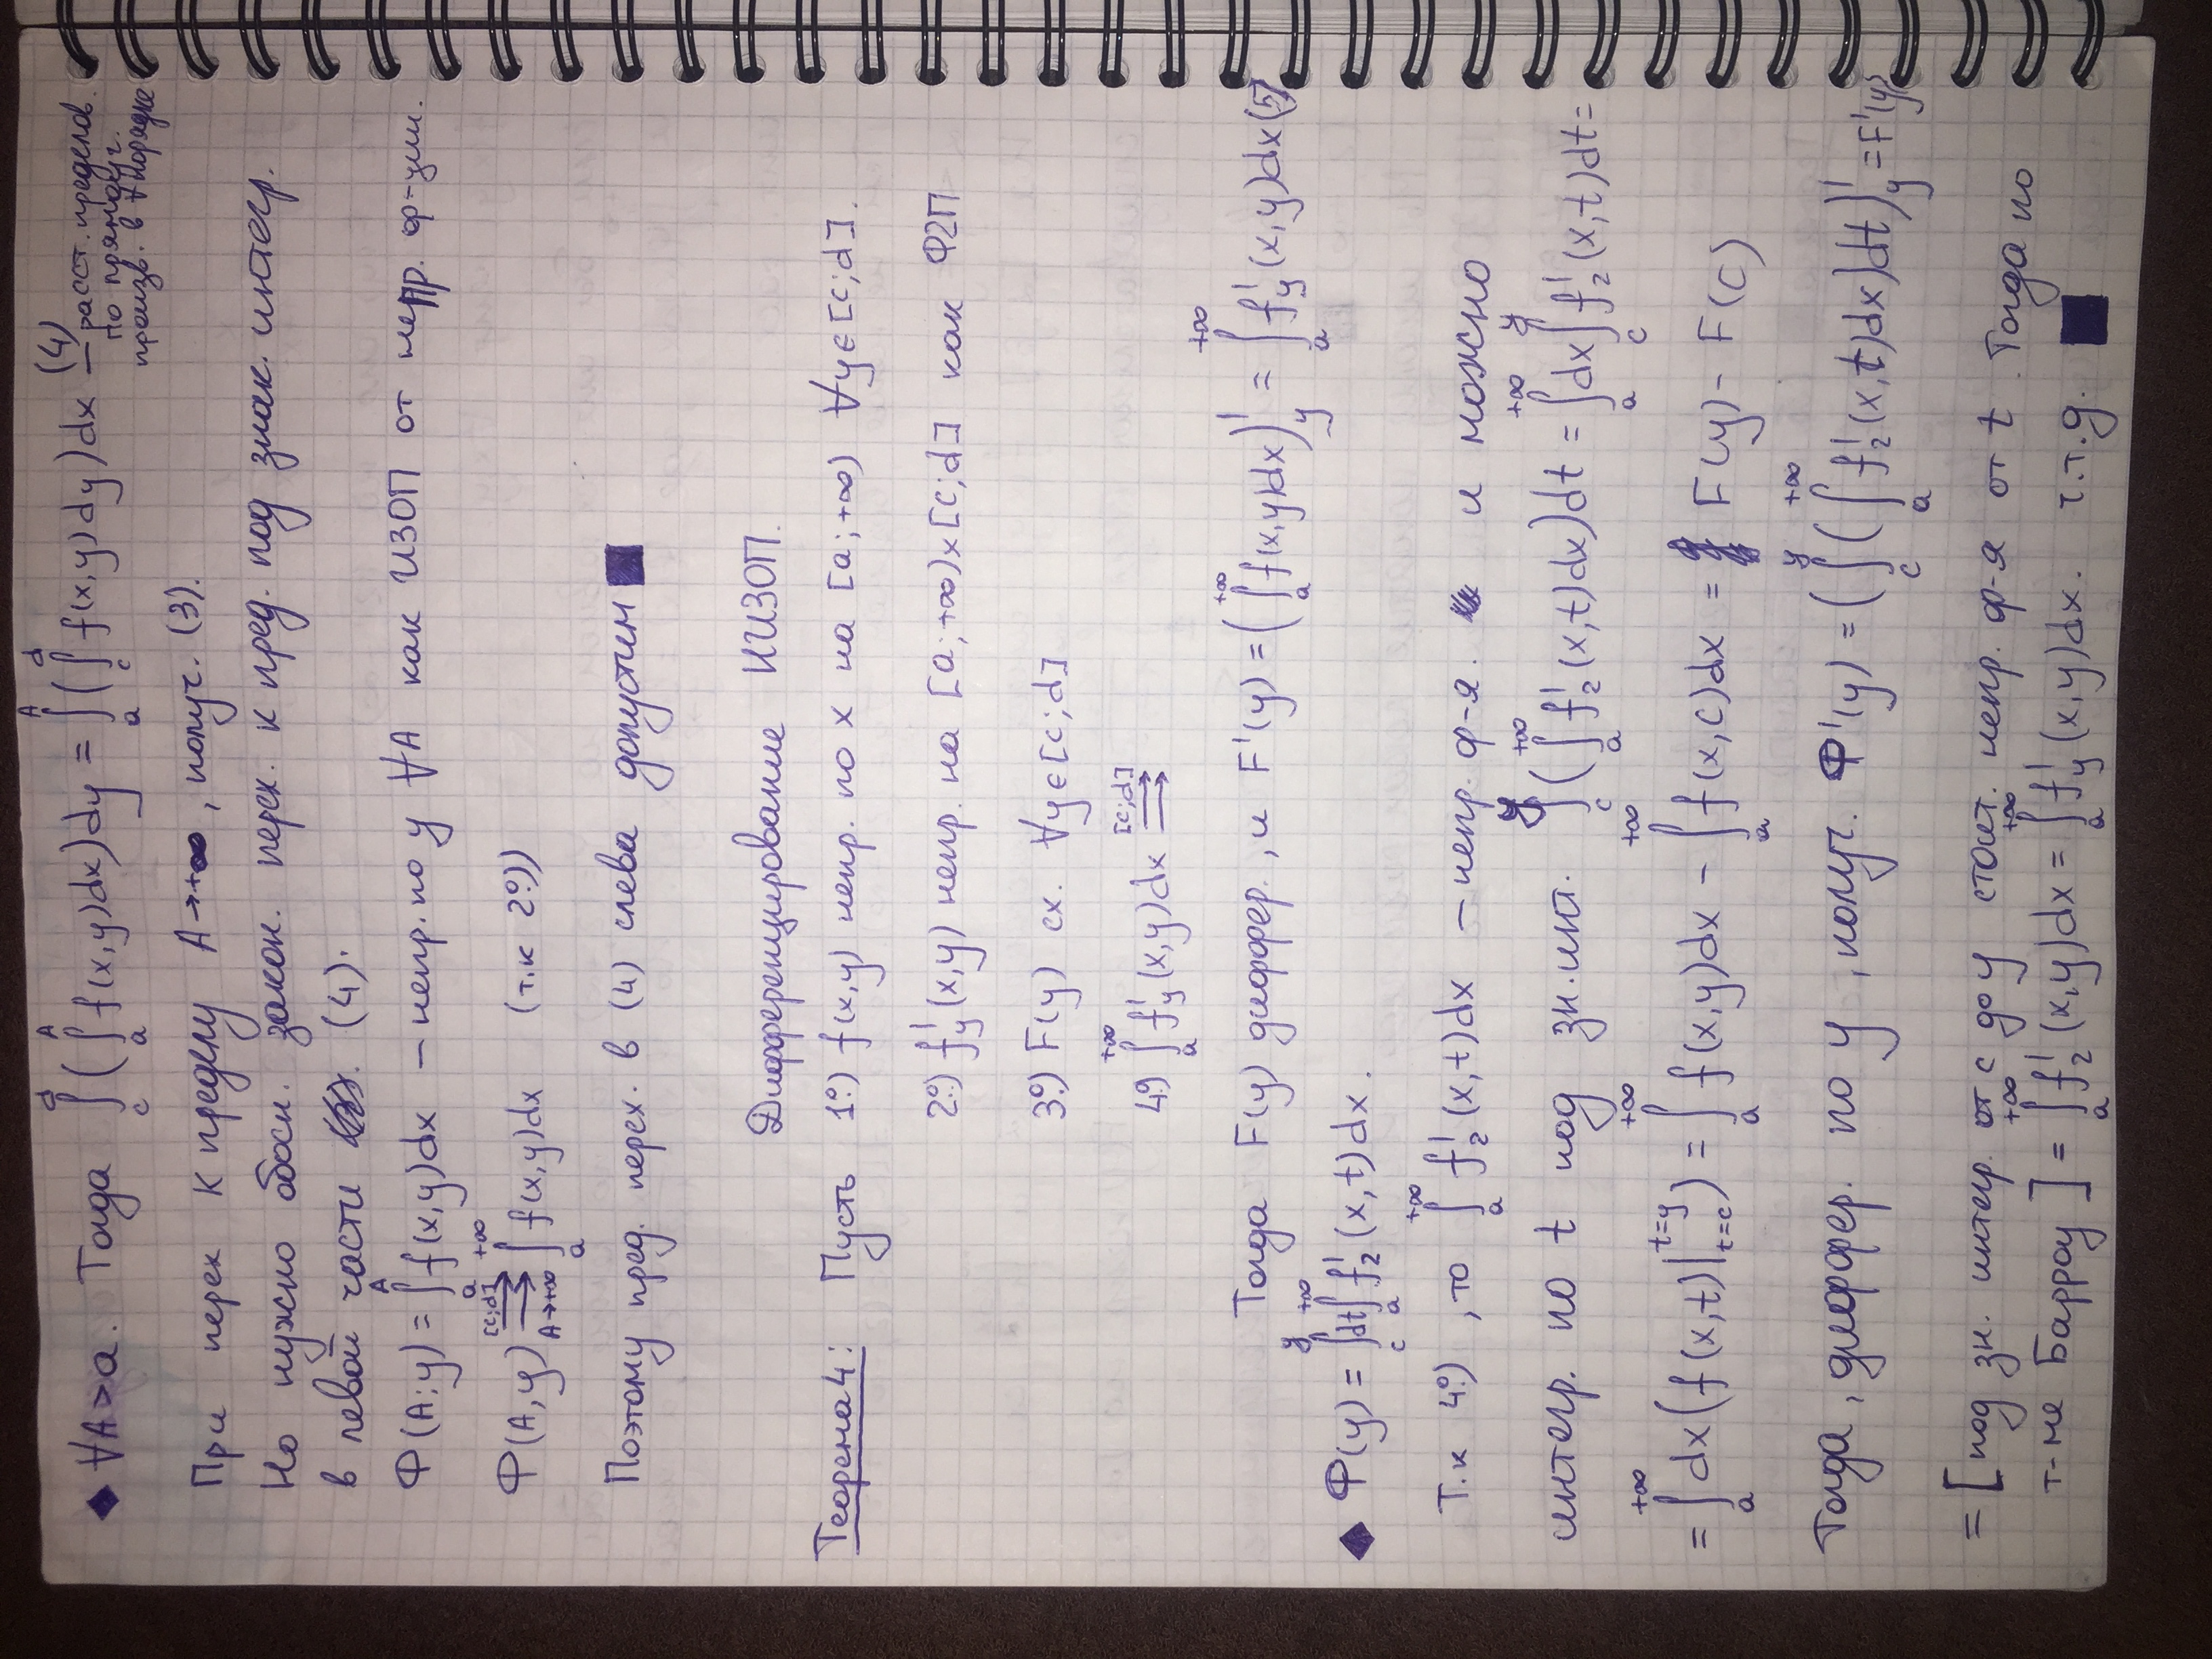 ◆ ∀A>a. Тогда ∫_c^d (∫_a^A f(x,y)dx)dy = ∫_a^A (∫_c^d f(x,y)dy)dx (4) — расст. пределов.
по прямоуг.
произв. в ∀ порядке
При перех к пределу A→+∞, получ. (3).
Но нужно обосн. закон. перех. к пред. под знак. интегр.
в левой части (4).
Φ(A;y) = ∫_a^A f(x,y)dx — непр. по y ∀A как ИЗОП от непр. ф-ции.
Φ(A,y) ⇉^{[c;d]}_{A→+∞} ∫_a^{+∞} f(x,y)dx (т.к 2º))
Поэтому пред. перех. в (4) слева допустим ■
Дифференцирование НИЗОП.
Теорема 4: Пусть 1º) f(x,y) непр. по x на [a;+∞) ∀y∈[c;d].
2º) f'_y(x,y) непр. на [a;+∞)×[c;d] как Ф2П
3º) F(y) сх. ∀y∈[c;d]
4º) ∫_a^{+∞} f'_y(x,y)dx ⇉^{[c;d]}
Тогда F(y) диффер., и F'(y) = (∫_a^{+∞} f(x,y)dx)'_y = ∫_a^{+∞} f'_y(x,y)dx (5)
◆ Φ(y) = ∫_c^y dt ∫_a^{+∞} f'_2(x,t)dx.
Т.к 4º), то ∫_a^{+∞} f'_2(x,t)dx — непр. ф-я. и можно
интегр. по t под зн. инт. ∫_c^y (∫_a^{+∞} f'_2(x,t)dx)dt = ∫_a^{+∞} dx ∫_c^y f'_2(x,t)dt =
= ∫_a^{+∞} dx (f(x,t)|_{t=c}^{t=y}) = ∫_a^{+∞} f(x,y)dx − ∫_a^{+∞} f(x,c)dx = F(y) − F(c)
Тогда, диффер. по y, получ. Φ'(y) = (∫_c^y (∫_a^{+∞} f'_2(x,t)dx)dt)'_y = F'(y)
= [под зн. интегр. от c до y стоит. непр. ф-я от t. Тогда по
т-ме Барроу] = ∫_a^{+∞} f'_2(x,y)dx = ∫_a^{+∞} f'_y(x,y)dx. ч.т.д. ■